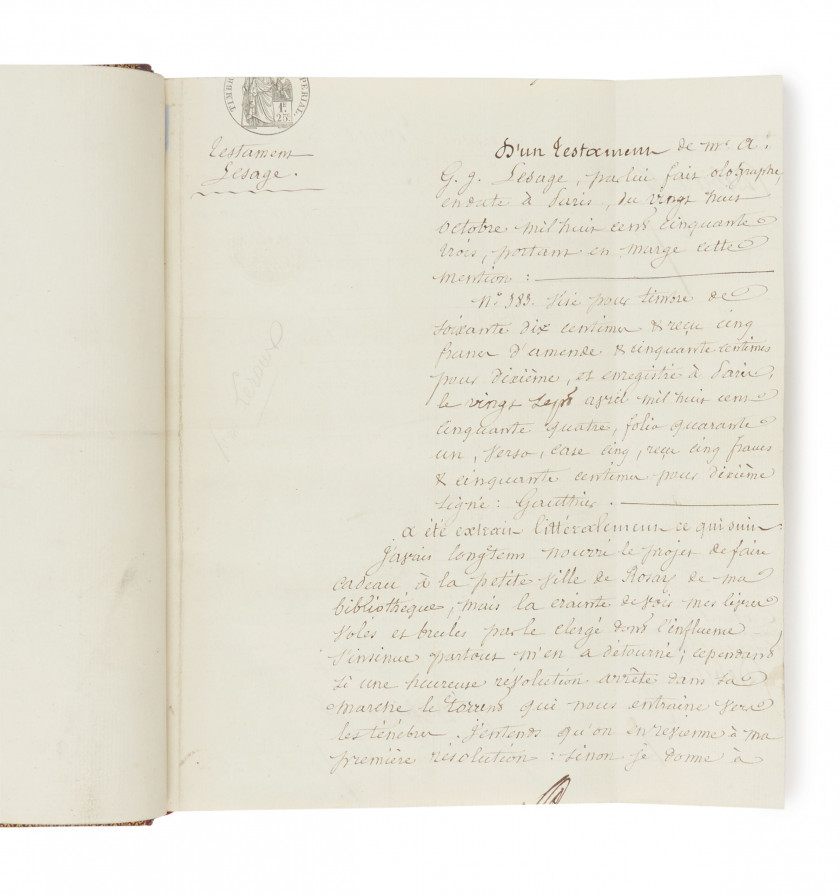 TIMBRE IMPERIAL
1F. 25c.
Testament
Lesage.
D'un testament de Mr. A.
G. J. Lesage, par lui fait olographe,
en date à Paris, du vingt huit
octobre mil huit cent cinquante
trois, portant en marge cette
mention :
No. 383. Visé pour timbre de
soixante dix centimes & reçu cinq
francs d'amende & cinquante centimes
pour dixième, et enregistré à Paris,
le vingt sept avril mil huit cent
cinquante quatre, folio quarante
un, verso, case cinq, reçu cinq francs
& cinquante centimes pour dixième
signé : Gauthier.
a été extrait littéralement ce qui suit :
J'avais longtems nourri le projet de faire
cadeau, à la petite ville de Rosay de ma
bibliothèque, mais la crainte de voir mes livres
volés et brulés par le clergé dont l'influence
s'insinue partout m'en a détourné ; cependant
si une heureuse révolution arrête dans sa
marche le torrent qui nous entraine vers
les ténèbres. J'entends qu'on en revienne à ma
première résolution : sinon je donne à